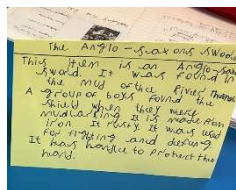 The Anglo-saxons swode
This item is an Anglo-sax
sword. It was found in
the mud of the River Thames
A group of boys found the
shield when they were
mudlarking It is made from
iron It rusty. It was used
for fighting and defung.
It has handle to protect the
hand.